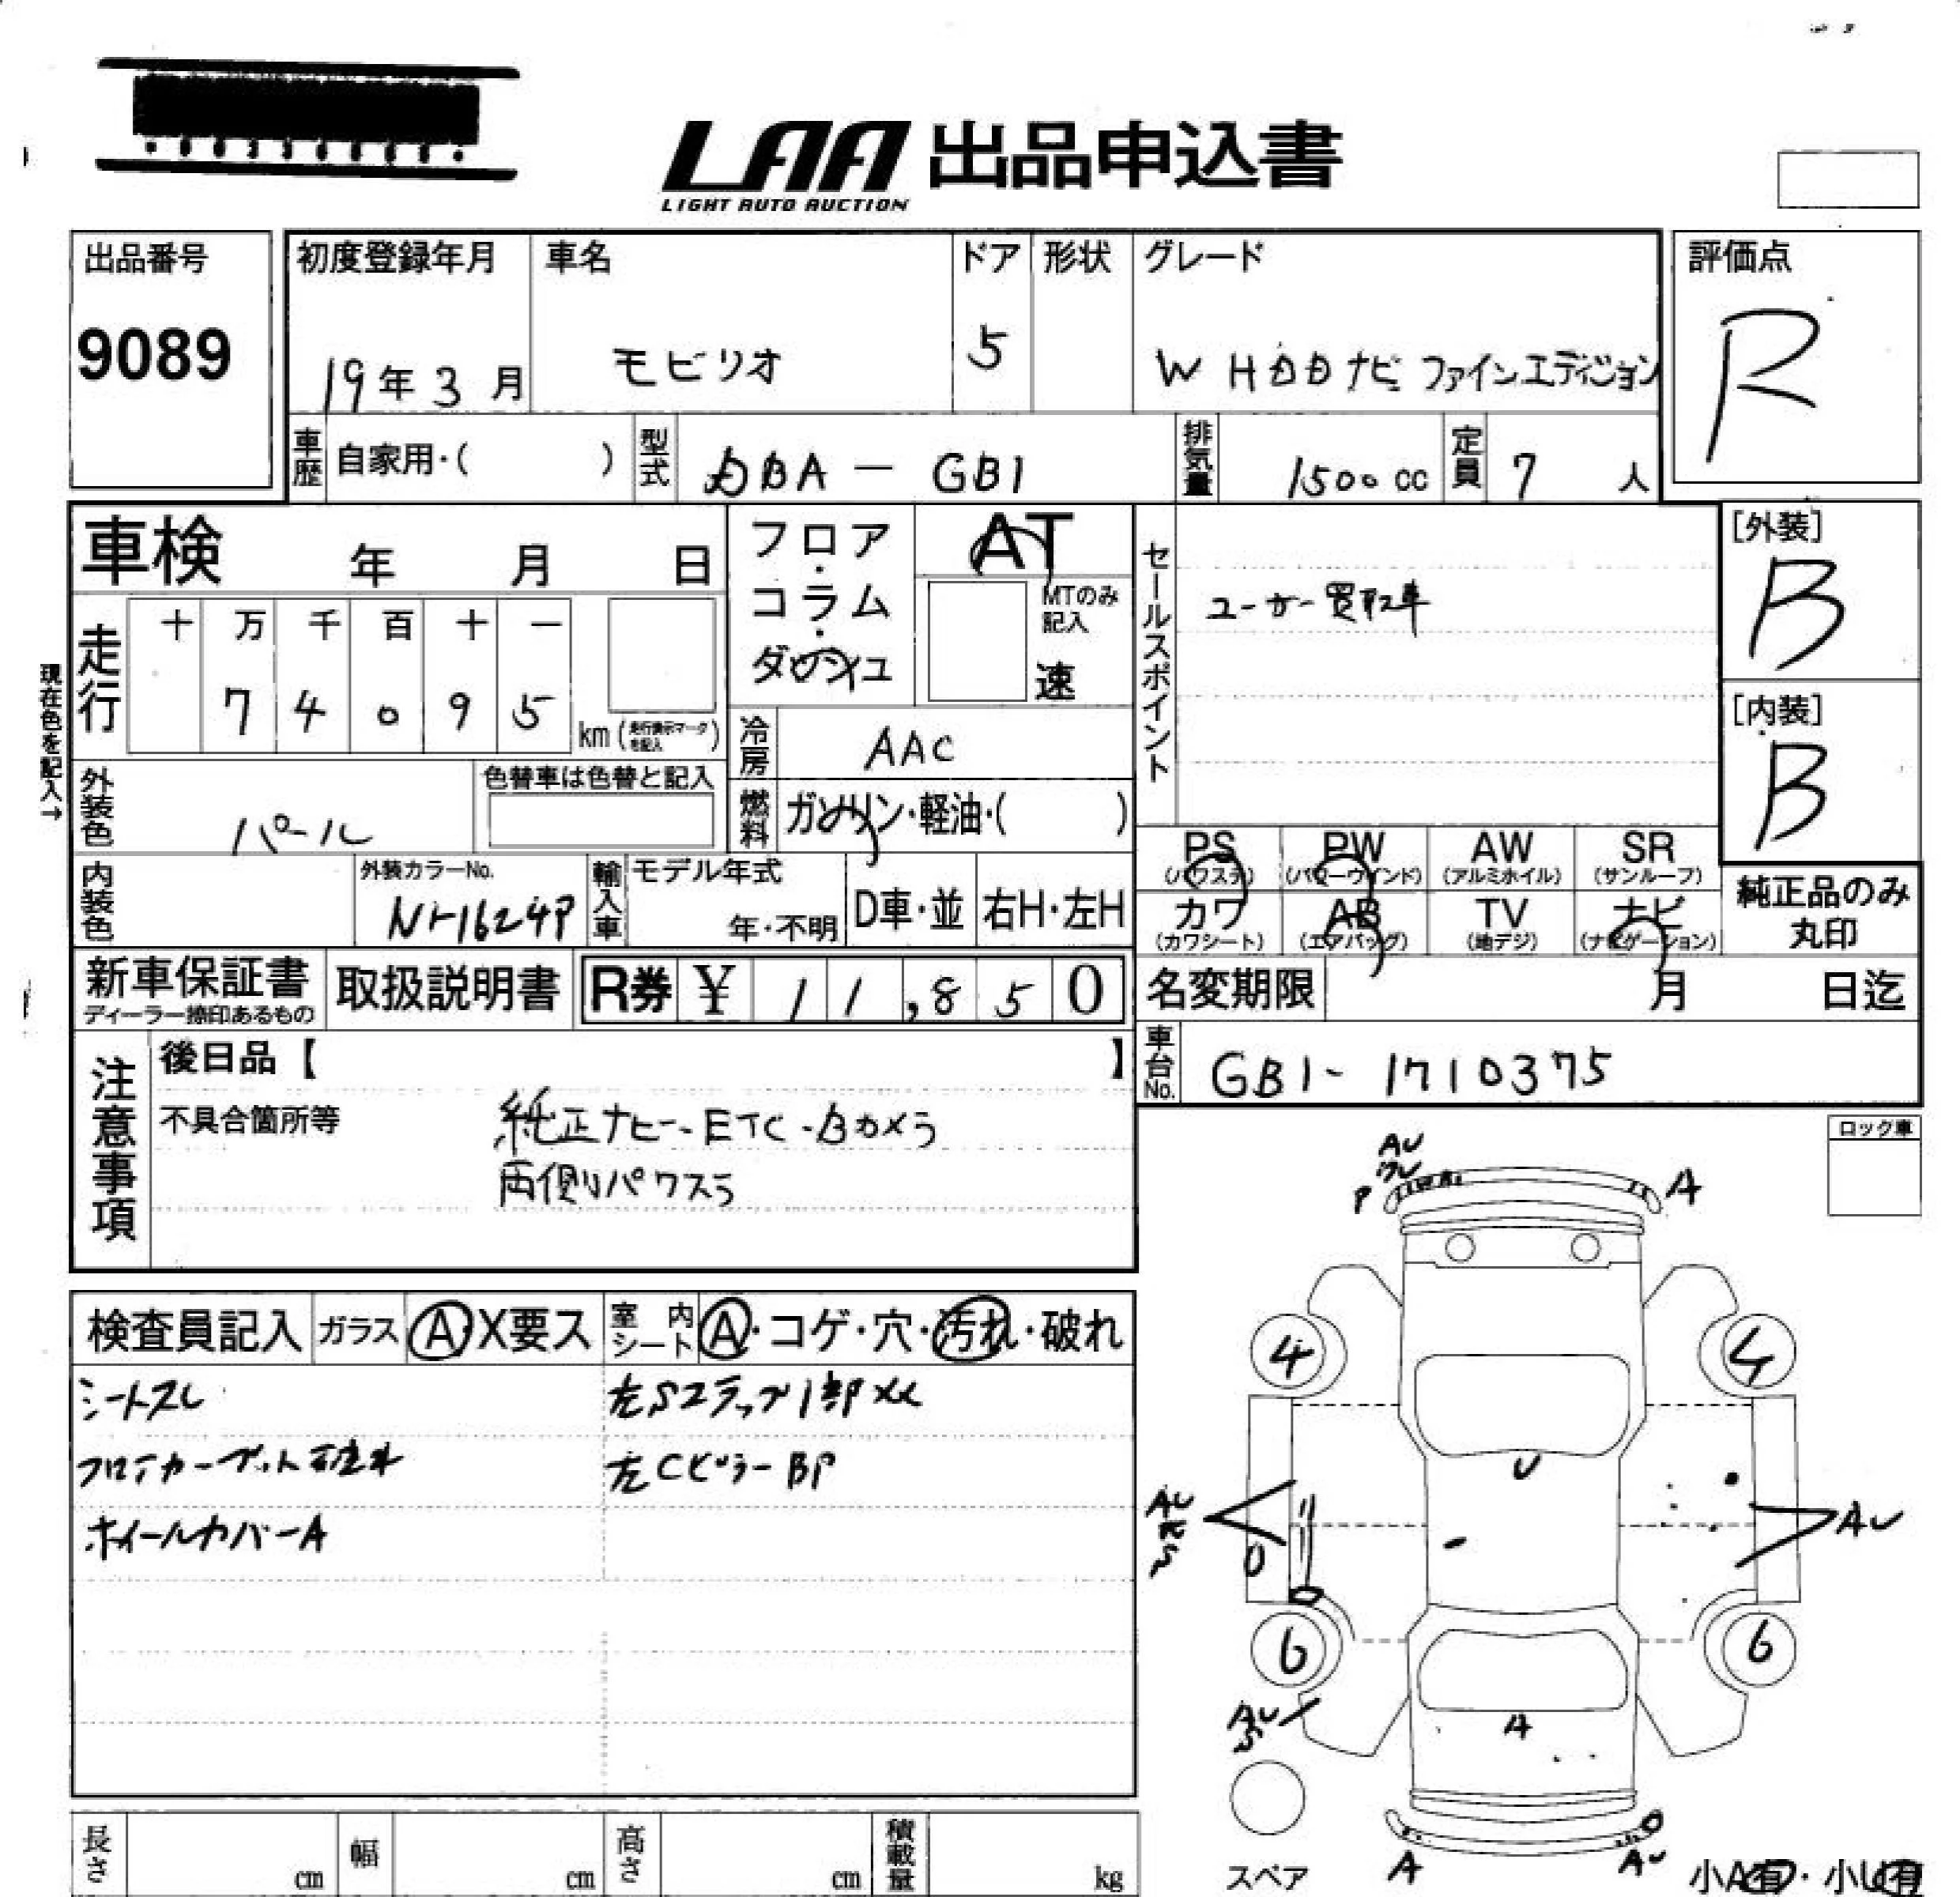 LAA 出品申込書
LIGHT AUTO AUCTION
出品番号
9089
初度登録年月
19年3月
車名
モビリオ
ドア
5
形状
グレード
W HDDナビ ファインエディション
評価点
R
車歴 自家用・( )
型式 DBA — GB1
排気量 1500 cc
定員 7 人
車検 年 月 日
フロア・コラム・ダッシュ
AT
MTのみ記入
速
セールスポイント
ユーザー買取車
[外装]
B
[内装]
B
現在色を記入→
走行
十 万 千 百 十 一
7 4 0 9 5
km (走行表示マークを記入)
冷房 AAC
外装色 パール
色替車は色替と記入
燃料 ガソリン・軽油・( )
内装色
外装カラーNo.
NH624P
輸入車
モデル年式
年・不明
D車・並
右H・左H
PS (パワステ)
PW (パワーウインド)
AW (アルミホイル)
SR (サンルーフ)
カワ (カワシート)
AB (エアバッグ)
TV (地デジ)
ナビ (ナビゲーション)
純正品のみ
丸印
新車保証書
ディーラー捺印あるもの
取扱説明書
R券 ¥ 11,850
名変期限 月 日迄
車台No. GB1- 1710375
注意事項
後日品【 】
不具合箇所等
純正ナビ-ETC-Bカメラ
両側パワスラ
ロック車
検査員記入
ガラス A・X要ス
室内シート A・コゲ・穴・汚れ・破れ
シートスレ
左Sステップ1部メメ
左Cピラー BP
ホイールカバーA
AU
P
A
4
4
U
AU
S
AU
6
6
AU
S
A
スペア
A
AU
小A有・小U有
長さ cm
幅 cm
高さ cm
積載量 kg